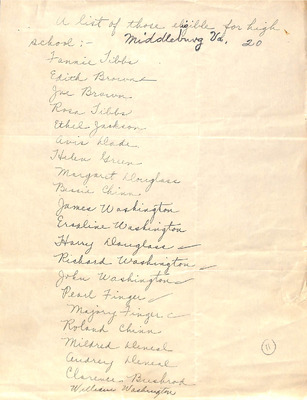 A list of those eligible for high
school :- Middleburg Va. 20
Fannie Tibbs
Edith Browne
Joe Brown
Rosa Tibbs
Ethel Jackson
Avis Dade
Helen Green
Margaret Douglass
Bessie Chinn
James Washington
Ersaline Washington
Harry Douglass
Richard Washington
John Washington
Pearl Finger
Majory Finger
Roland Chinn
Mildred Deneal
Audrey Deneal
Clarence Bushrod
William Washington
11